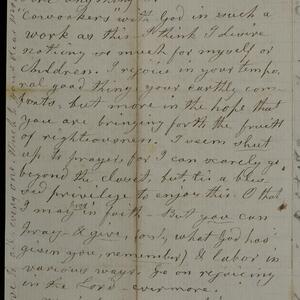 "Coworkers" with God in such a
work as this - I think I desire
nothing so much for myself or
children. I rejoice in your tempo-
ral good things, your earthly com-
forts, but more in the hope that
you are bringing forth the fruits
of righteousness. I seem shut
up to prayer, for I can scarcely go
beyond the closet, but tis a bles-
sed privilege to enjoy this. O that
I may in faith - But you can
pray - & give, (out, what God has
given you, remember) & labor in
various ways. Go on rejoicing
in the Lord - evermore.